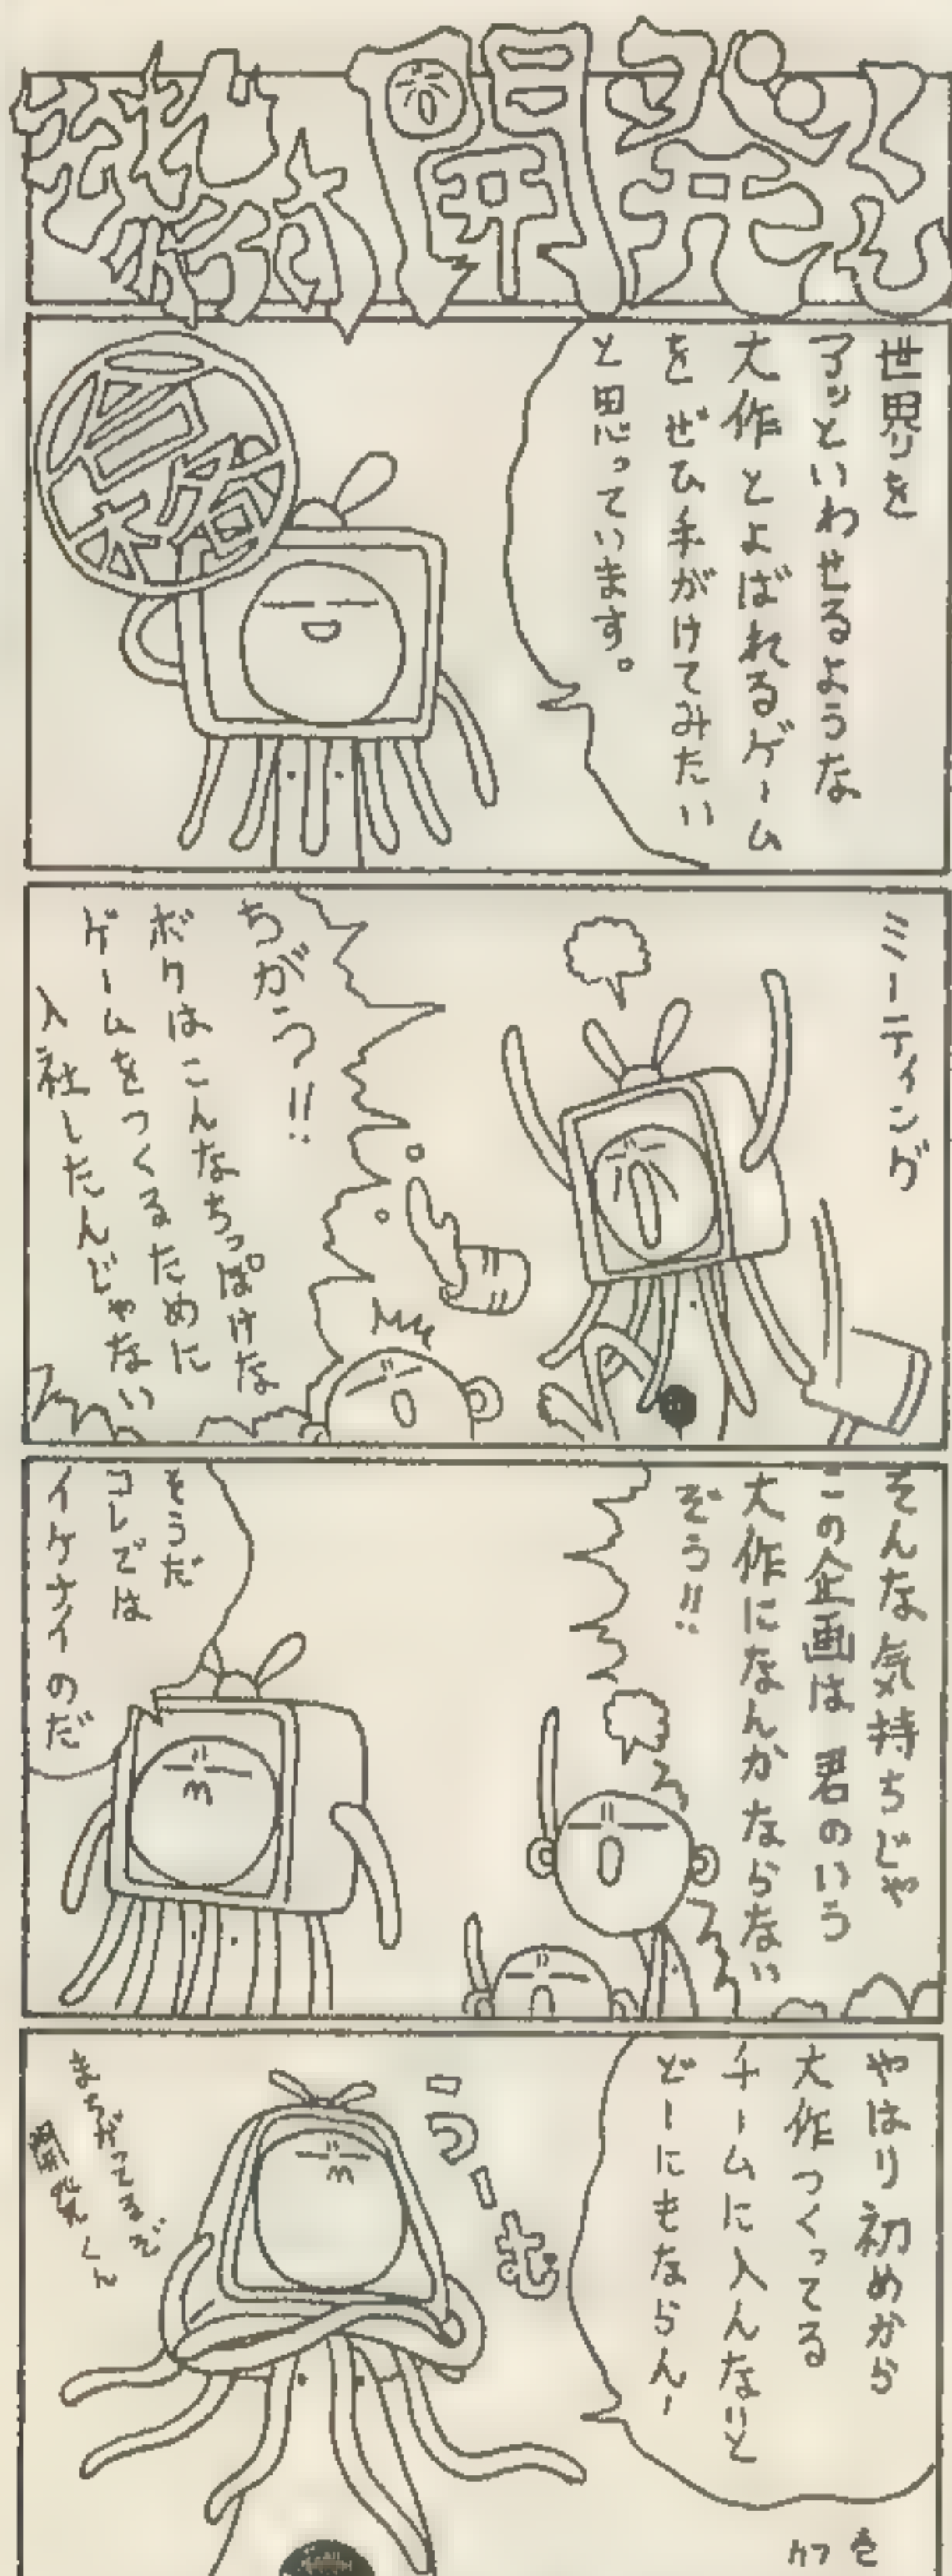 開発くん
就職
合格
世界を
アッといわせるような
大作とよばれるゲーム
をぜひ手がけてみたい
と思っています。
ミーティング
ちがう!!
ボクはこんなちっぽけな
ゲームをつくるために
入社したんじゃない
そんな気持ちじゃ
この企画は 君のいう
大作になんかならない
ぞう!!
そうだ
コレでは
イケナイのだ
やはり初めから
大作つくってる
チームに入んなりと
どーにもならん!
うーむ
まちがってるぞ
開発くん